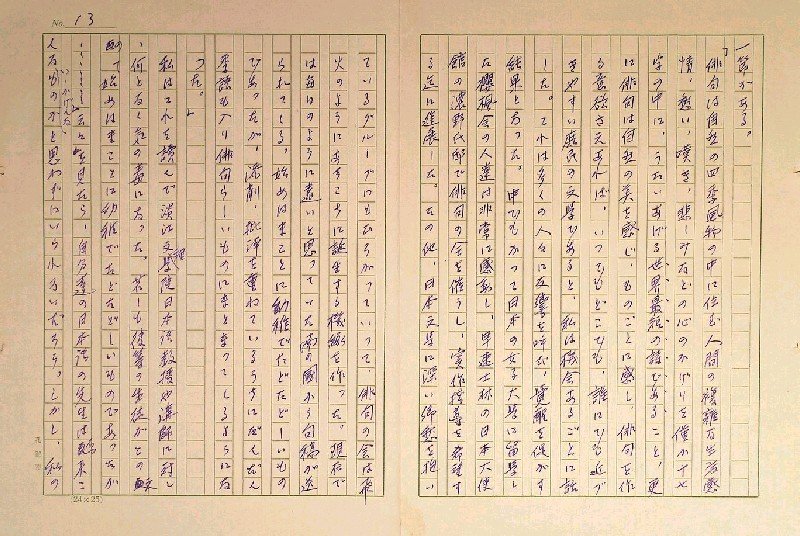 No. 13
一節がある。
「俳句は自然の四季風物の中に住む人間の複雑な生活感
情、愁い、嘆き、悲しみなどの心のかげりを僅か十七
字の中に、うたいあげる世界最短の詩であること、更
に俳句は自然の美を感じ、ものごとに感じ、俳句を作
る意係さえあれば、いつでもどこでも、誰にでも近づ
きやすい庶民の文学であると、私は機会あるごとに話
した。それは多くの人々に反響を呼び、電離を促がす
結果となった。中でもかつて日本の女子大学に留学し
た櫻楓会の人達は非常に感動し、早速士林の日本大使
館の濃野氏邸で俳句の会を催うし、実作指導を希望す
る迄に進展した。その他、日本文学に深い郷愁を抱い
ているグループにもひろがっていって、俳句の会は夜
火のようにあちこちに誕生する機縁を作った。現在で
は毎日のように暑いと思っていた南の国から句稿が送
られてくる。始めはまことに幼稚でたどたどしいもの
であったが、添削、批評を重ねているうちにだんだん
季語も入り俳句らしいものにまとまってくるようにな
った。」
私はこれを読んで淡江文理学院日本語教授や講師に対し
、何となく気の毒になった。若しも彼等の生徒がこの
始めはまことに幼稚でたどたどしいものであったが
…………云々を見たら、自分達の日本語の先生は
いいかげんな
人なものかと思わずにはいられないだろう。しかし、私の
(24×25)